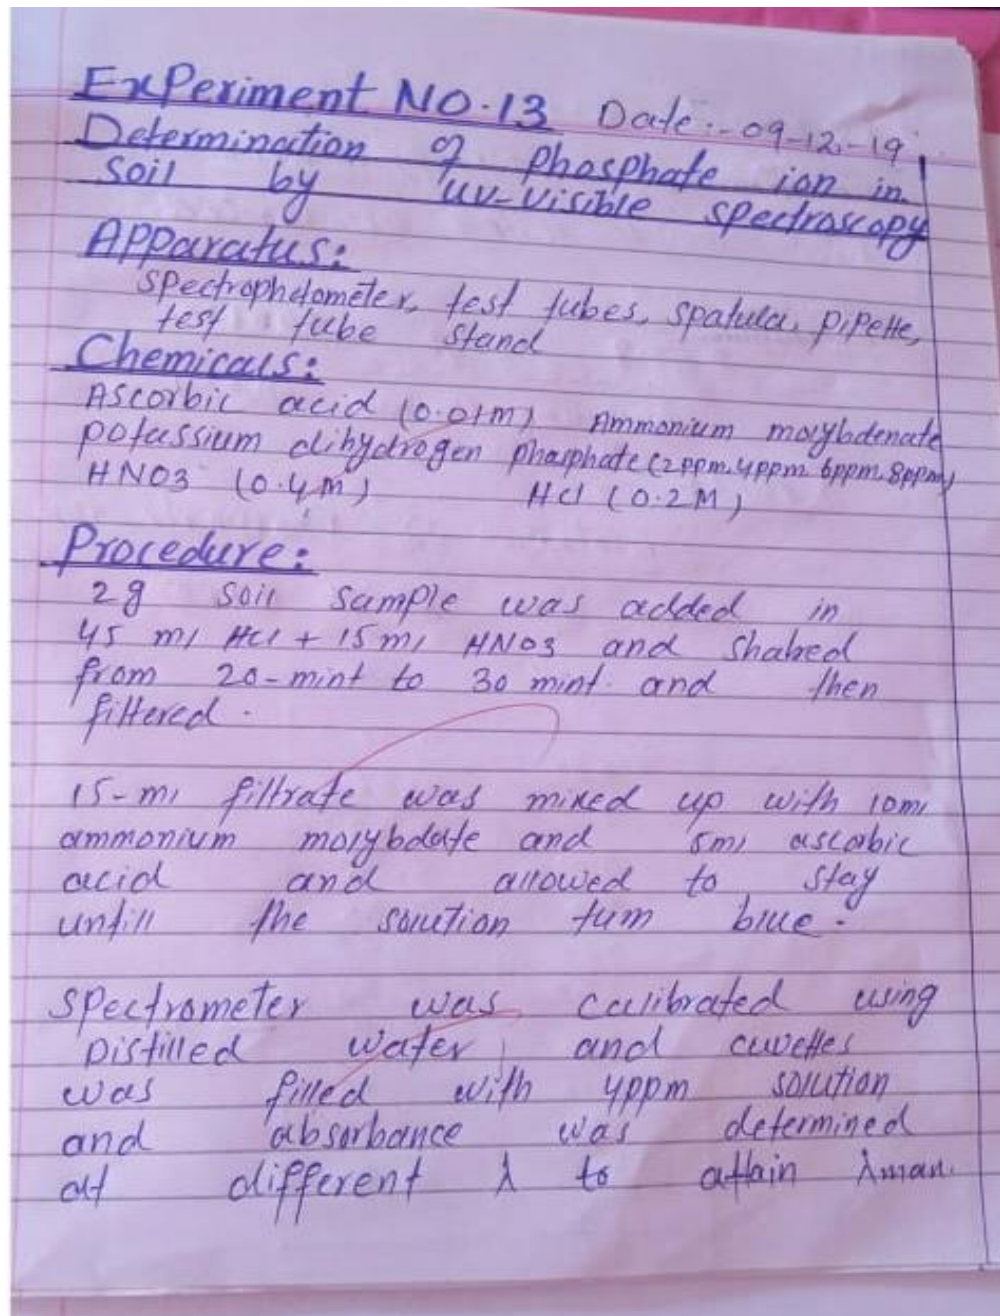 ExPeriment NO.13 Date:-09-12-19
Determination of phosphate ion in
soil by uv-visible spectroscopy
Apparatus:
spectrophotometer, test tubes, spatula, pipette,
test tube stand
Chemicals:
Ascorbic acid (0.01M) Ammonium molybdenate
potassium dihydrogen phasphate (2ppm.4ppm.6ppm.8ppm)
HNO3 (0.4M) HCl (0.2M)
Procedure:
2g soil sample was added in
45 ml HCl + 15ml HNO3 and shaked
from 20-mint to 30 mint. and then
filtered.
15-ml filtrate was mixed up with 10ml
ammonium molybdate and 5ml ascorbic
acid and allowed to stay
untill the solution turn blue.
spectrometer was calibrated using
Distilled water, and cuvettes
was filled with 4ppm solution
and absorbance was determined
at different λ to attain λman.